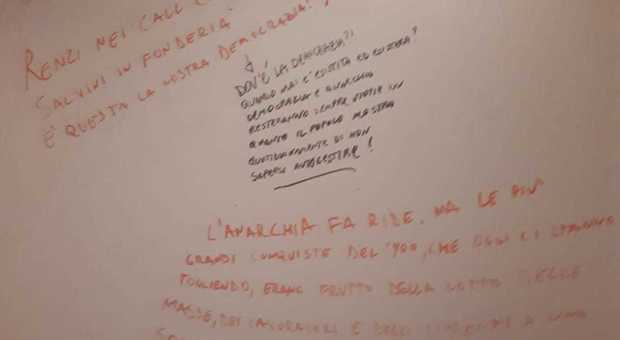 RENZI NEI CALL
SALVINI IN FONDERIA.
E' QUESTA LA NOSTRA DEMOCRAZIA!
DOV'È LA DEMOCRAZIA?!
QUANDO MAI È ESISTITA ED ESISTERÀ?
DEMOCRAZIA E ANARCHIA
RESTERANNO SEMPRE UTOPIE IN
QUANTO IL POPOLO MOSTRA
QUOTIDIANAMENTE DI NON
SAPERSI AUTOGESTIRE!
L'ANARCHIA FA RIDE. MA LE PIÙ
GRANDI CONQUISTE DEL '900, CHE OGGI CI STANNO
TOGLIENDO, ERANO FRUTTO DELLA LOTTA DELLE
MASSE, DEI LAVORATORI E DEGLI